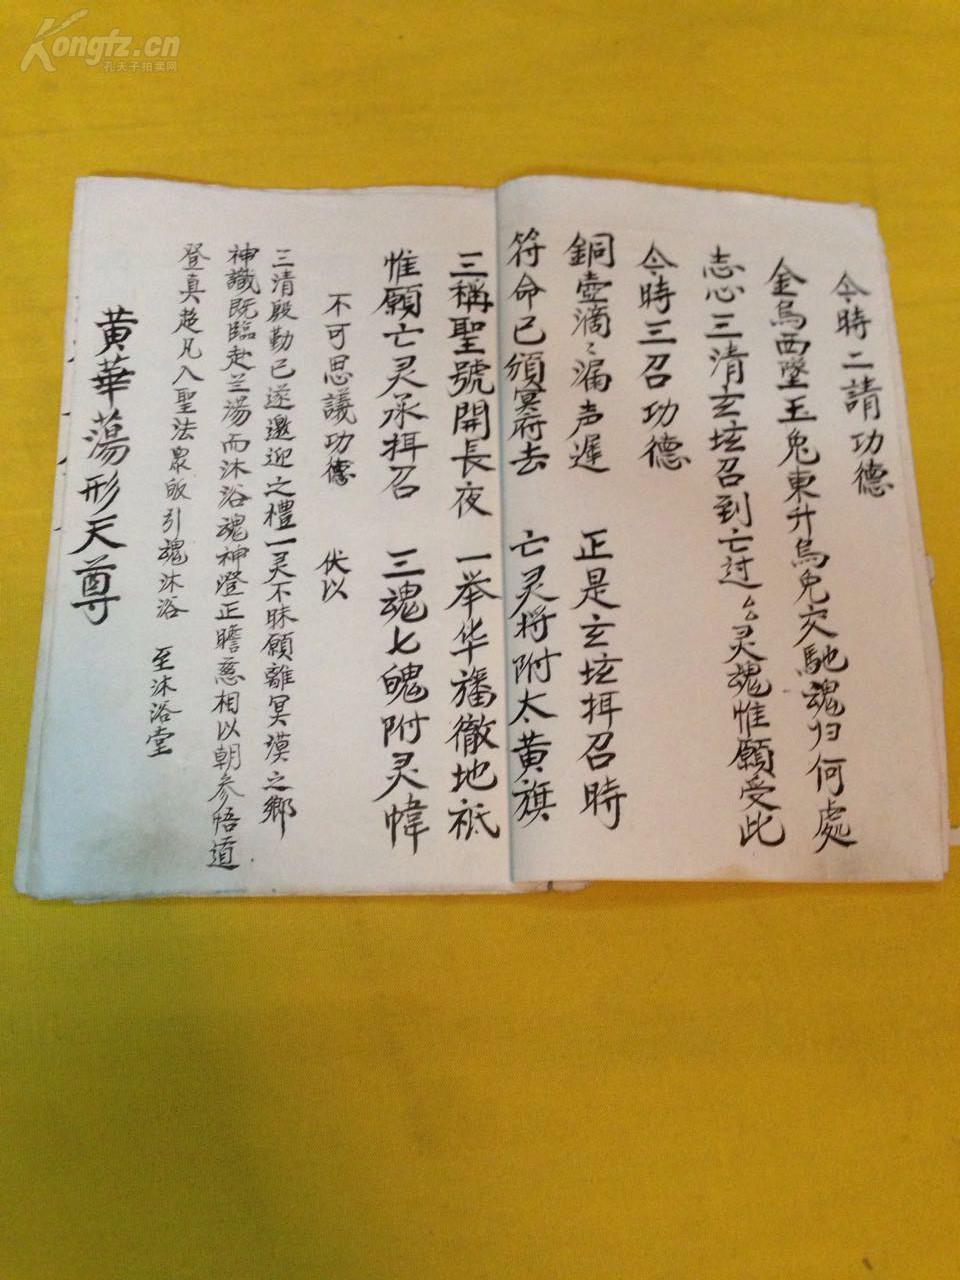 Kongfz.cn
孔夫子拍卖网
今時二請功德
金烏西墜玉兔東升烏兔交馳魂归何處
志心三清玄坛召到亡过厶厶灵魂惟願受此
今時三召功德
銅壺滴〻漏声遲 正是玄坛拜召時
符命已頒冥府去 亡灵将附太黄旗
三稱聖號開長夜 一举华旛徹地祇
惟願亡灵承拜召 三魂七魄附灵幃
不可思議功德 伏以
三清殿勤已遂邀迎之禮一灵不昧願離冥漠之鄉
神識既臨赴兰湯而沐浴魂神澄正瞻慈相以朝参悟道
登真超凡入聖法衆皈引魂沐浴 至沐浴堂
黄華蕩形天尊